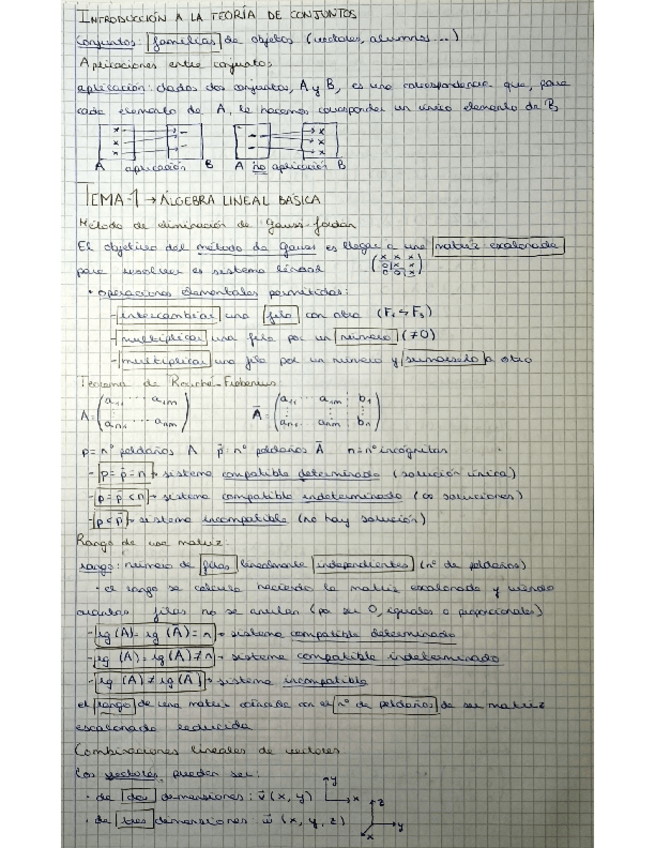 INTRODUCCIÓN A LA TEORÍA DE CONJUNTOS
Conjuntos: familias de objetos (vectores, alumnos...)
Aplicaciones entre conjuntos
aplicación: dados dos conjuntos, A y B, es una correspondencia que, para
cada elemento de A, le hacemos corresponder un único elemento de B
A aplicación B A no aplicación B
TEMA-1 → ÁLGEBRA LINEAL BÁSICA
Método de eliminación de Gauss-Jordan
El objetivo del método de Gauss es llegar a una matriz escalonada
para resolver el sistema lineal
• operaciones elementales permitidas:
- intercambiar una fila con otra
- multiplicar una fila por un número (≠0)
- multiplicar una fila por un número y sumárselo a otra
Teorema de Rouché-Frobenius
A = (a₁₁ ... a₁m Ā = (a₁₁ ... a₁m b₁
an₁ ... anm) an₁ ... anm bn)
p = nº peldaños A p̄ = nº peldaños Ā n = nº incógnitas
- p = p̄ = n → sistema compatible determinado (solución única)
- p = p̄ < n → sistema compatible indeterminado (∞ soluciones)
- p < p̄ → sistema incompatible (no hay solución)
Rango de una matriz:
rango: número de filas linealmente independientes (nº de peldaños)
• el rango se calcula haciendo la matriz escalonada y viendo
cuantas filas no se anulan (por ser 0, iguales o proporcionales)
- rg (A) = rg (Ā) = n → sistema compatible determinado
- rg (A) = rg (Ā) ≠ n → sistema compatible indeterminado
- rg (A) ≠ rg (Ā) → sistema incompatible
el rango de una matriz coincide con el nº de peldaños de su matriz
escalonada reducida
Combinaciones lineales de vectores
Los vectores pueden ser:
• de dos dimensiones: v⃗ (x, y) y x
• de tres dimensiones: w⃗ (x, y, z) z y x